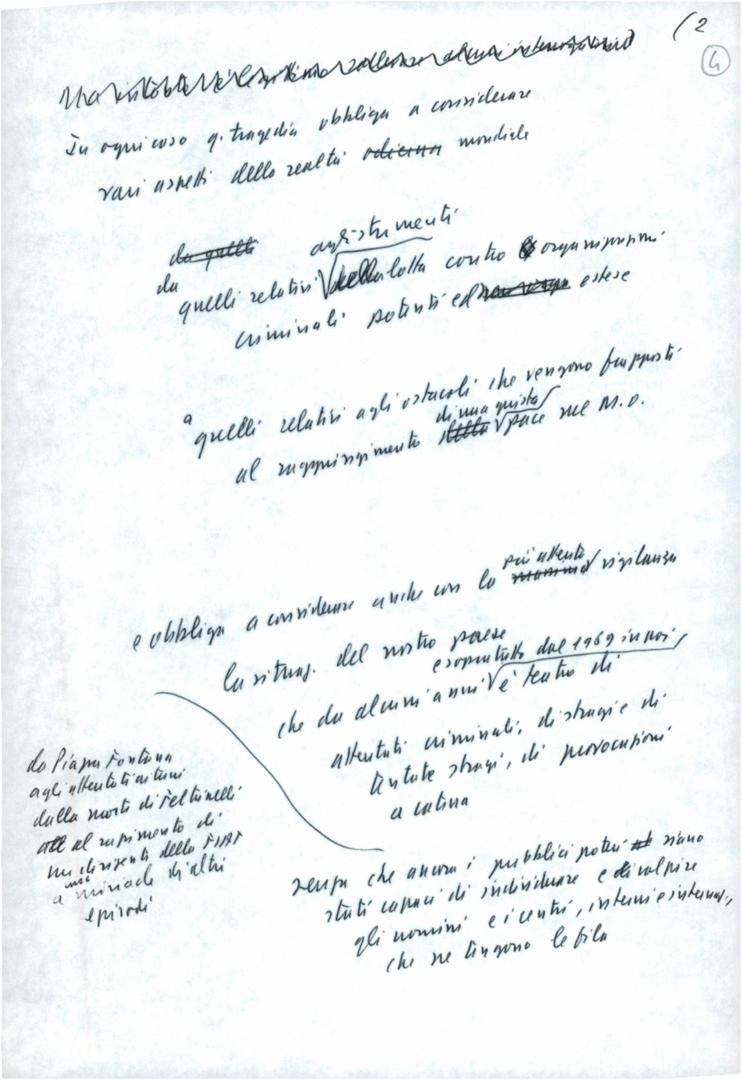 (2
4
In ogni caso q. tragedia obbliga a considerare
vari aspetti della realtà mondiale
da quelli
agli strumenti
da
quelli relativi della lotta contro organizzazioni
criminali potenti ed estese
a quelli relativi agli ostacoli che vengono frapposti
di una giusta
al raggiungimento della pace nel M.O.
più attenta
e obbliga a considerare anche con la vigilanza
la situaz. del nostro paese
e soprattutto dal 1969 in poi
che da alcuni anni è teatro di
attentati criminali, di stragi e di
tentate stragi, di provocazioni
a catena
da Piazza Fontana
agli attentati ai treni
dalla morte di Feltrinelli
al rapimento di
un dirigente della FIAT
a una miriade di altri
episodi
senza che ancora i pubblici poteri siano
stati capaci di individuare e di colpire
gli uomini e i centri, interni e internaz.,
che ne tengono le fila